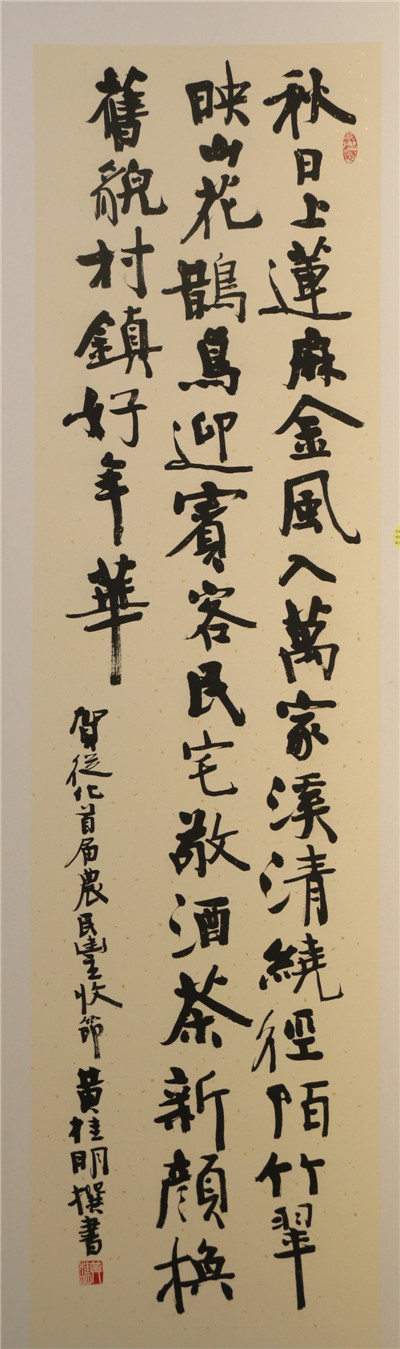 秋日上蓮麻金風入萬家溪清繞徑陌竹翠
映山花鵲鳥迎賓客民宅敬酒茶新顏換
舊貌村鎮好年華
賀從化首届農民豐收節 黃桂明撰書